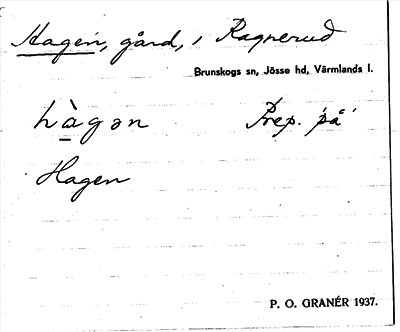 Hagen, gård, i Ragnerud
Brunskogs sn, Jösse hd, Värmlands l.
hàgən Prep. 'på'
Hagen
P. O. GRANÉR 1937.